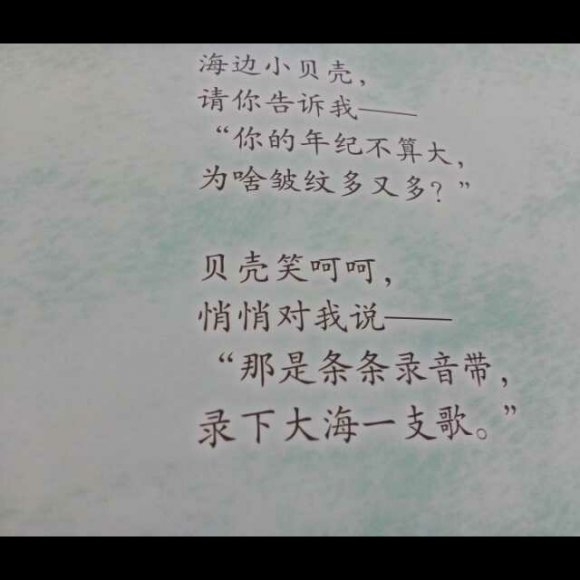 海边小贝壳，
请你告诉我——
“你的年纪不算大，
为啥皱纹多又多？”
贝壳笑呵呵，
悄悄对我说——
“那是条条录音带，
录下大海一支歌。”